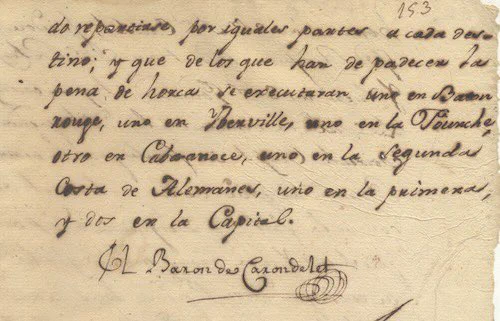 153
do repartirse por iguales partes a cada des-
tino; y que de los que han de padecer la
pena de horca se executaran uno en Baton
rouge, uno en Yberville, uno en la Fourche,
otro en Cabaanoce, uno en la segunda
Costa de Alemanes, uno en la primera,
y dos en la Capital.
El Baron de Carondelet